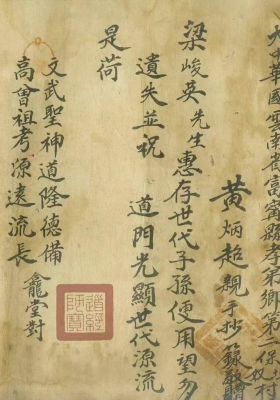 大中華國雲南省富寧縣孝來鄉第二保瓦村
黃炳超親手抄錄敬贈
梁峻英先生惠存世代子孫使用望勿
遺失並祝 道門光顯世代源流
是荷
文武聖神道隆德備
高曾祖考源遠流長
龕堂對
道經師寶